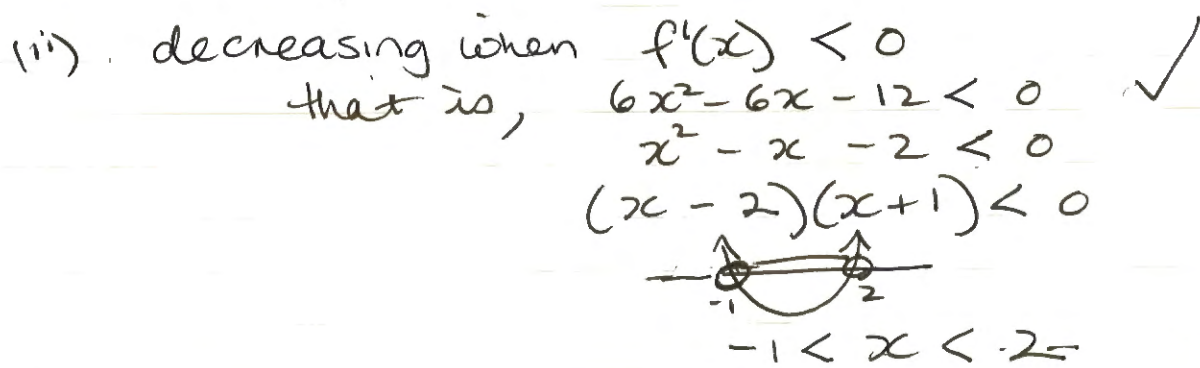 (ii). decreasing when f'(x) < 0
that is, 6x² - 6x - 12 < 0 ✓
x² - x - 2 < 0
(x - 2)(x + 1) < 0
-1 2
-1 < x < 2